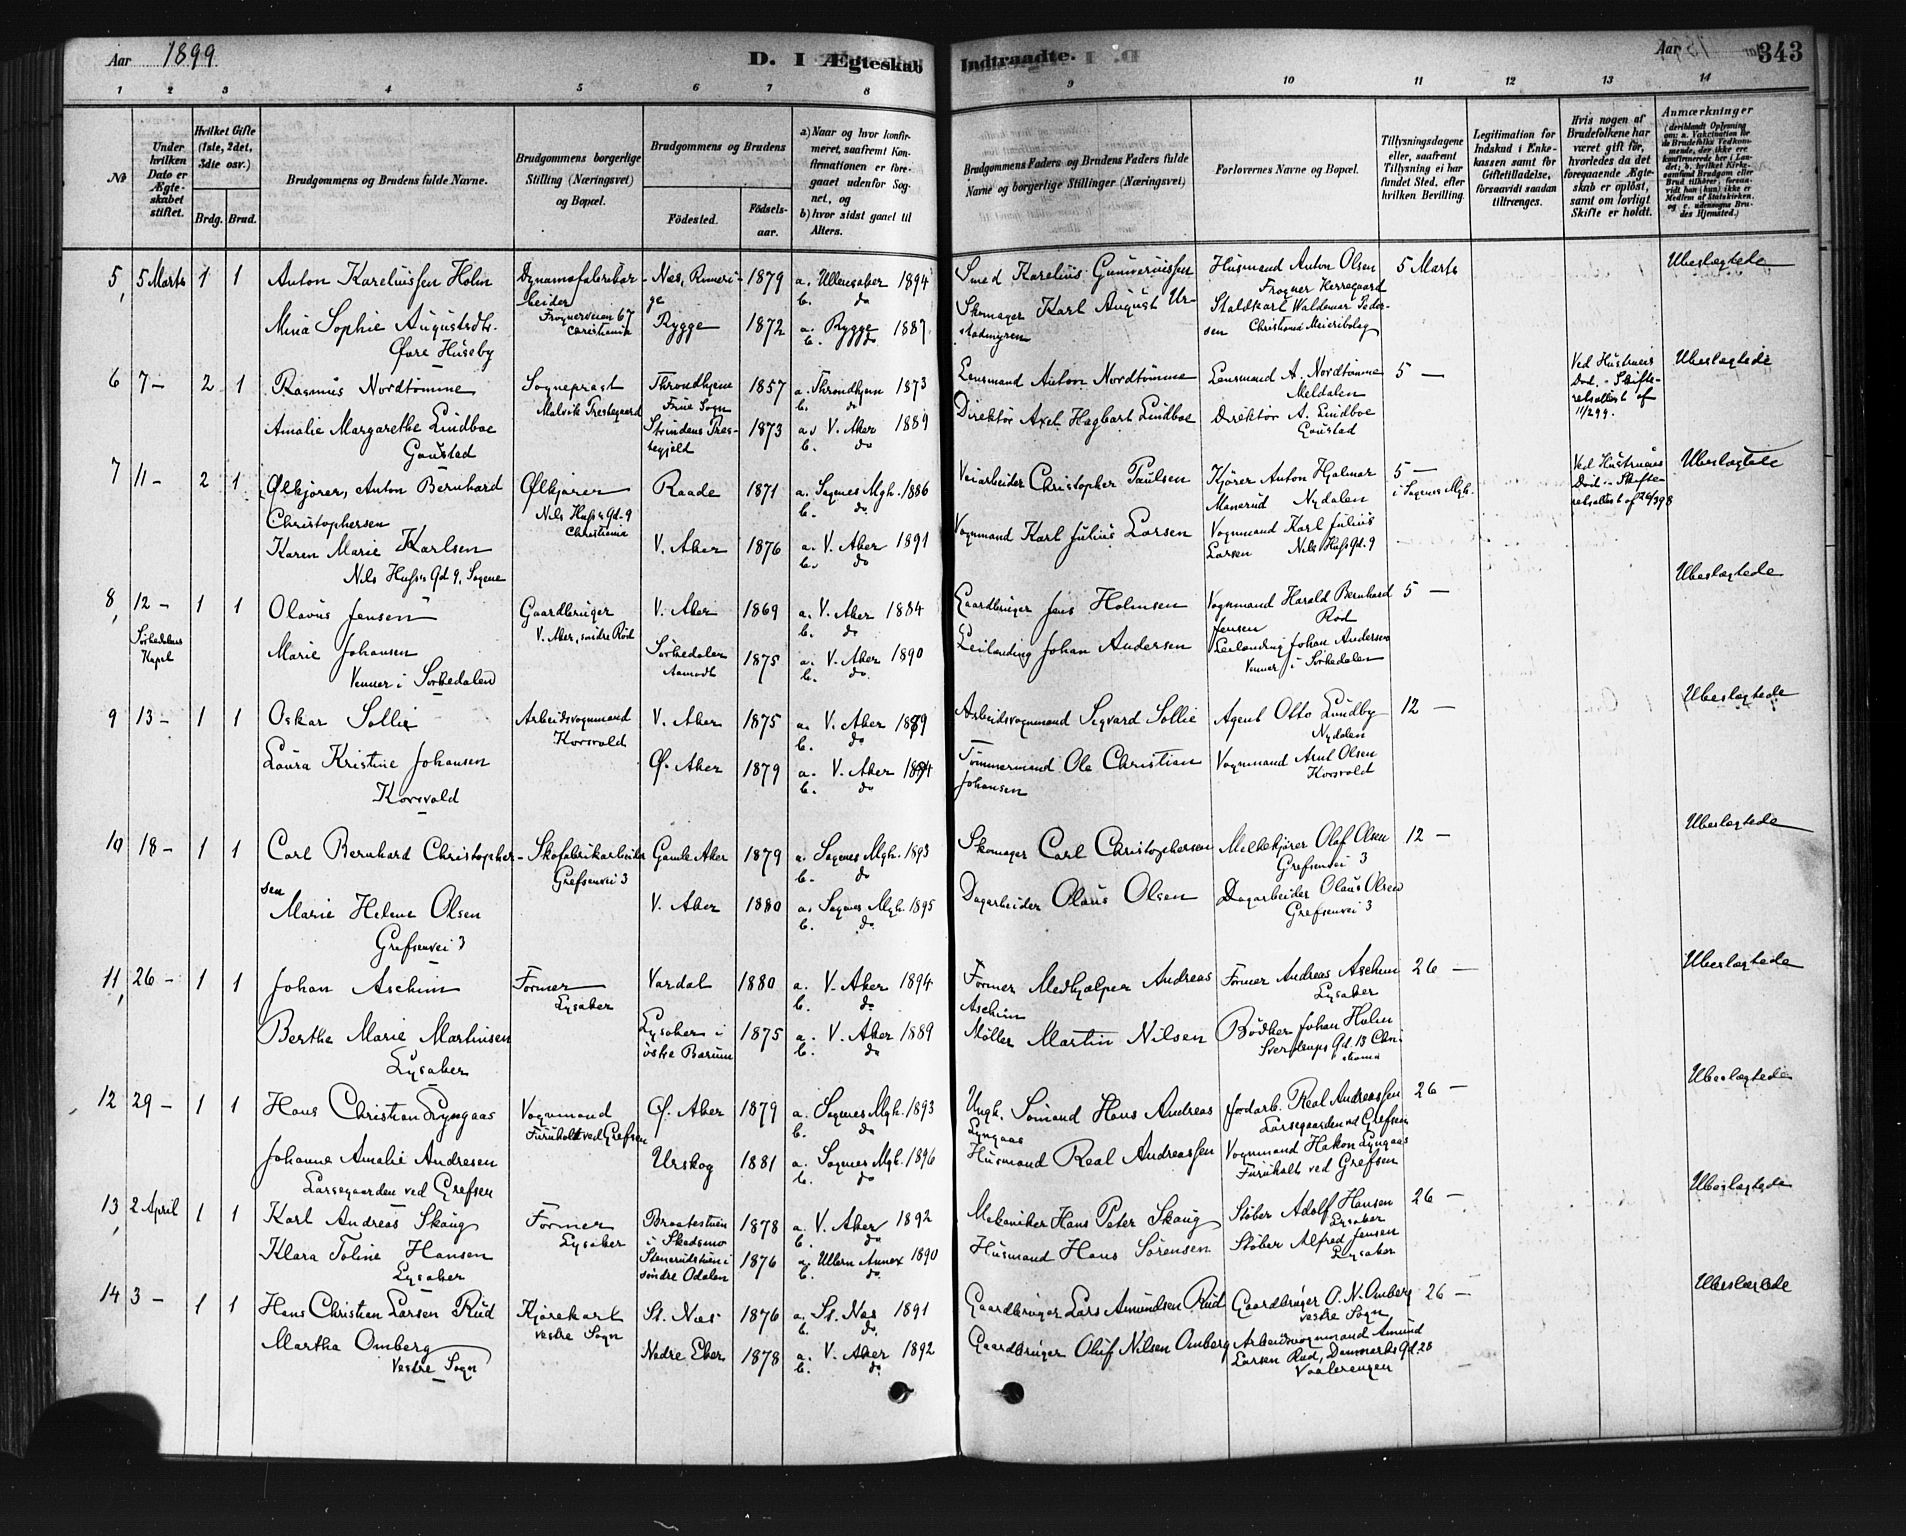 Aar 1899
D. I Ægteskab
Indtraadte.
Aar
343
1 2 3 4 5 6 7 8 9 10 11 12 13 14
No
Under hvilken Dato er Ægteskabet stiftet.
Hvilket Gifte (1ste, 2det, 3die osv.)
Brdg. Brud.
Brudgommens og Brudens fulde Navne.
Brudgommens borgerlige Stilling (Næringsvei) og Bopæl.
Brudgommens og Brudens
Fødested.
Fødselsaar.
a) Naar og hvor konfirmeret, saafremt Konfirmationen er foregaaet udenfor Sognet, og
b) hvor sidst gaaet til Alters.
Brudgommens Faders og Brudens Faders fulde Navne og borgerlige Stillinger (Næringsvei)
Forlovernes Navne og Bopæl.
Tillysningsdagene eller, saafremt Tillysning ei har fundet Sted, efter hvilken Bevilling.
Legitimation for Indskud i Enkekassen samt for Giftetilladelse, forsaavidt saadan tiltrænges.
Hvis nogen af Brudefolkene har været gift før, hvorledes da det foregaaende Ægteskab er opløst, samt om lovligt Skifte er holdt.
Anmærkninger
(deriblandt Oplysning om: a. Vakcination for de Brudefolks Vedkommende, der ikke ere konfirmerede her i Landet; b. hvilket Kirkesamfund Brudgom eller Brud tilhører, forsaavidt han (hun) ikke er Medlem af Statskirken, og c. udensogns Brudes Hjemsted.)
5 5 Marts 1 1 Anton Kareliussen Holm Dynamofabrikarbeider Frognerveien 67 Christiania Nes, Romerige 1879 a. Ullensaker 1894 b. do Smed Karelius Gunneriussen Husmand Anton Olsen Frogner Herregaard 5 Marts Ubeslægtede
Mina Sophie Augustsdtr. Øvre Huseby Rygge 1872 a. Rygge 1887 b. do Skomager Karl August Urstadmyren Staldkarl Waldemar Pedersen Christiania Meieribolag
6 7 - 2 1 Rasmus Nordtømme Sogneprest Malvik Prestegaard Throndhjem Frue Sogn 1857 a. Throndhjem 1873 b. do Lensmand Anton Nordtømme Lensmand A. Nordtømme Meldalen 5 - Ved Hustrues Død. - Skifteretsattest af 11/2 99. Ubeslægtede
Amalie Margarethe Lindboe Gaustad Strindens Prestegjeld 1873 a. V. Aker 1889 b. do Direktør Axel Hagbart Lindboe Direktør A. Lindboe Gaustad
7 11 - 2 1 Ølkjører, Anton Bernhard Christophersen Ølkjører Nils Huss Gd. 9 Christiania Raade 1871 a. Sagenes Mgh. 1886 b. do Veiarbeider Christopher Paulsen Kjører Anton Hjalmar Manerud Nydalen 5 - i Sagenes Mgh. Ved Hustrues Død. - Skifteretsattest af 26/3 98 Ubeslægtede
Karen Marie Karlsen Nils Huss Gd 9, Sagene V. Aker 1876 a. V. Aker 1891 b. do Vognmand Karl Julius Larsen Vognmand Karl Julius Larsen Nils Huss Gd. 9
8 12 - Sørkedalens Kapel 1 1 Olavus Jensen Gaardbruger V. Aker, søndre Rød V. Aker 1869 a. V. Aker 1884 b. do Gaardbruger Jens Holmsen Vognmand Harald Bernhard Jensen Rød 5 - Ubeslægtede
Marie Johansen Venner i Sørkedalen Sørkedalen Aamodt 1875 a. V. Aker 1890 b. do. Leilending Johan Andersen Leilending Johan Andersen Venner i Sørkedalen
9 13 - 1 1 Oskar Sollie Arbeidsvognmand Korsvold V. Aker 1875 a. V. Aker 1889 b. do Arbeidsvognmand Sigvard Sollie Agent Otto Lundby Nydalen 12 - Ubeslægtede
Laura Kristine Johansen Korsvold Ø. Aker 1879 a. V. Aker 1894 b. do Tømmermand Ole Christian Johansen Vognmand Arnt Olsen Korsvold
10 18 - 1 1 Carl Bernhard Christophersen Skofabrikarbeider Grefsenvei 3 Gamle Aker 1879 a. Sagenes Mgh. 1893 b. do Skomager Carl Christophersen Melkekjører Olaf Olsen Grefsenvei 3 12 - Ubeslægtede
Marie Helene Olsen Grefsenvei 3 V. Aker 1880 a. Sagenes Mgh. 1895 b. do. Dagarbeider Olaus Olsen Dagarbeider Olaus Olsen Grefsenvei 3
11 26 - 1 1 Johan Aschim Former Lysaker Vardal 1880 a. V. Aker 1894 b. do Former Medhjælper Andreas Aschim Former Andreas Aschim Lysaker 26 - Ubeslægtede
Berthe Marie Martinsen Lysaker Lysaker i østre Barum 1875 a. V. Aker 1889 b. do Møller Martin Nilsen Bødker Johan Holm Sverdrups Gd. 13 Christiania
12 29 - 1 1 Hans Christian Lyngaas Vognmand Furuholt ved Grefsen Ø. Aker 1879 a. Sagenes Mgh. 1893 b. do Ungk. Sømand Hans Andreas Lyngaas Jordarb. Real Andreassen Larsegaarden ved Grefsen 26 - Ubeslægtede
Johanne Amalie Andresen Larsegaarden ved Grefsen Urskog 1881 a. Sagenes Mgh. 1896 b. do Husmand Real Andreassen Vognmand Hakon Lyngaas Furuholt ved Grefsen
13 2 April 1 1 Karl Andreas Skaug Former Lysaker Braatestuen i Skedsmo 1878 a. V. Aker 1892 b. do Mekaniker Hans Peter Skaug Støber Adolf Hansen Lysaker 26 - Ubeslægtede
Klara Toline Hansen Lysaker Stenerudstuen i søndre Odalen 1876 a. Ullern Annex 1890 b. do. Husmand Hans Sørensen Støber Alfred Jensen Lysaker
14 3 - 1 1 Hans Christian Larsen Rud Kjørekarl vestre Sogn St. Nes 1876 a. St. Nes 1891 b. do. Gaardbruger Lars Amundsen Rud Gaardbruger O. N. Omberg vestre Sogn 26 - Ubeslægtede
Martha Omberg Vestre Sogn Nedre Eker 1878 a. V. Aker 1892 b. do. Gaardbruger Oluf Nilsen Omberg Arbeidsvognmand Amund Larsen Rud, Danmarks Gd. 28 Vaalerengen